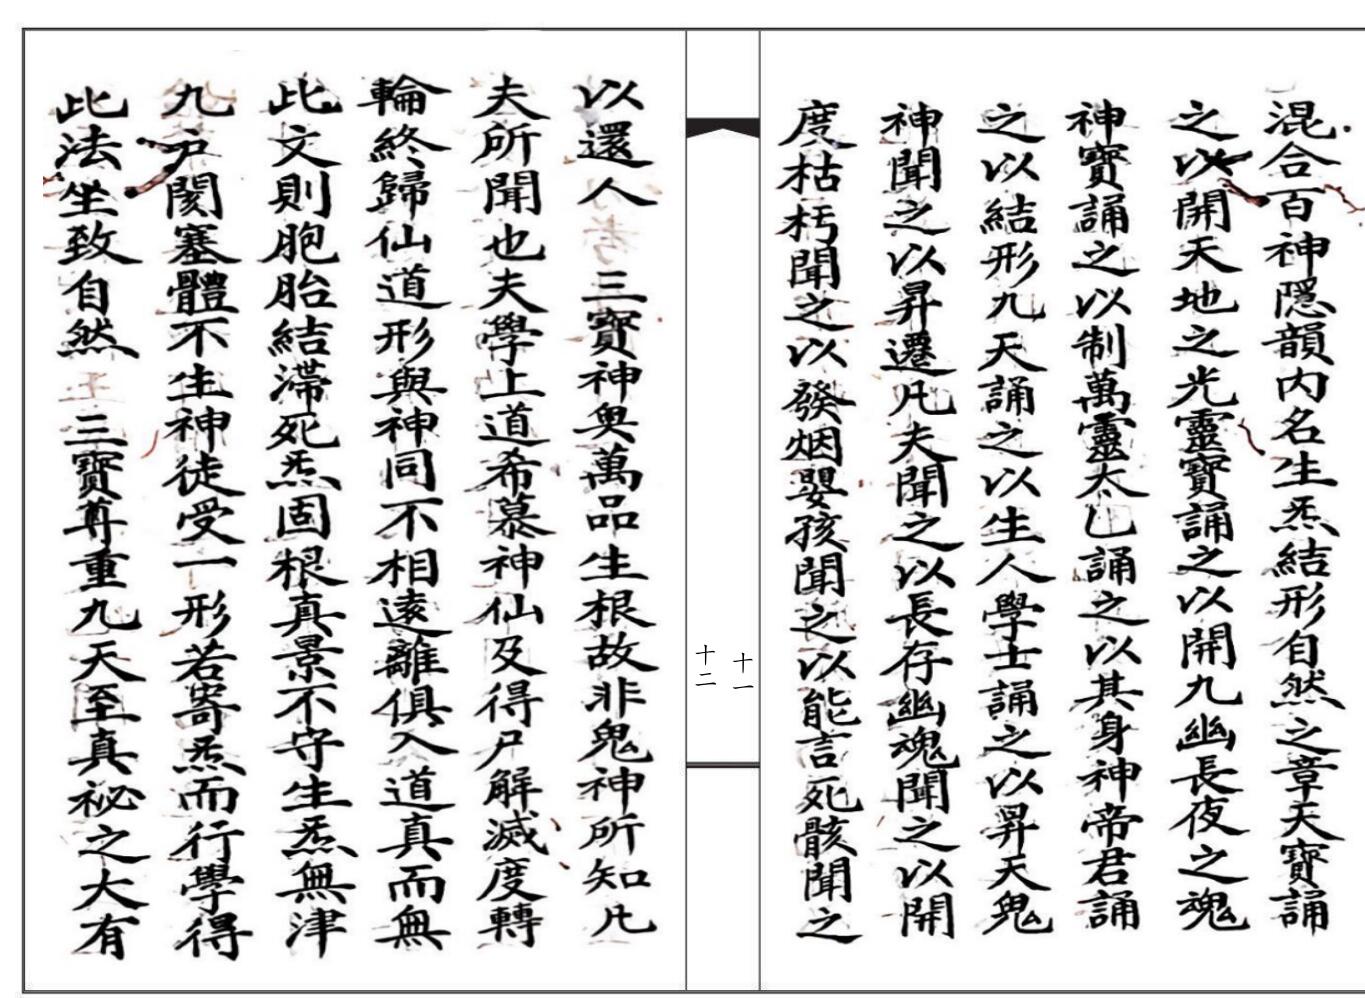 混合百神隱韻内名生炁結形自然之章天寶誦
之以開天地之光靈寶誦之以開九幽長夜之魂
神寶誦之以制萬靈太一誦之以其身神帝君誦
之以結形九天誦之以生人學士誦之以昇天鬼
神聞之以昇遷凡夫聞之以長存幽魂聞之以開
度枯朽聞之以發烟嬰孩聞之以能言死骸聞之
十一
十二
以還人三寶神奥萬品生根故非鬼神所知凡
夫所聞也夫學上道希慕神仙及得尸解滅度轉
輪終歸仙道形與神同不相遠離俱入道真而無
此文則胞胎結滯死炁固根真景不守生炁無津
九户閡塞體不生神徒受一形若寄炁而行學得
此法坐致自然三寶尊重九天至真祕之大有